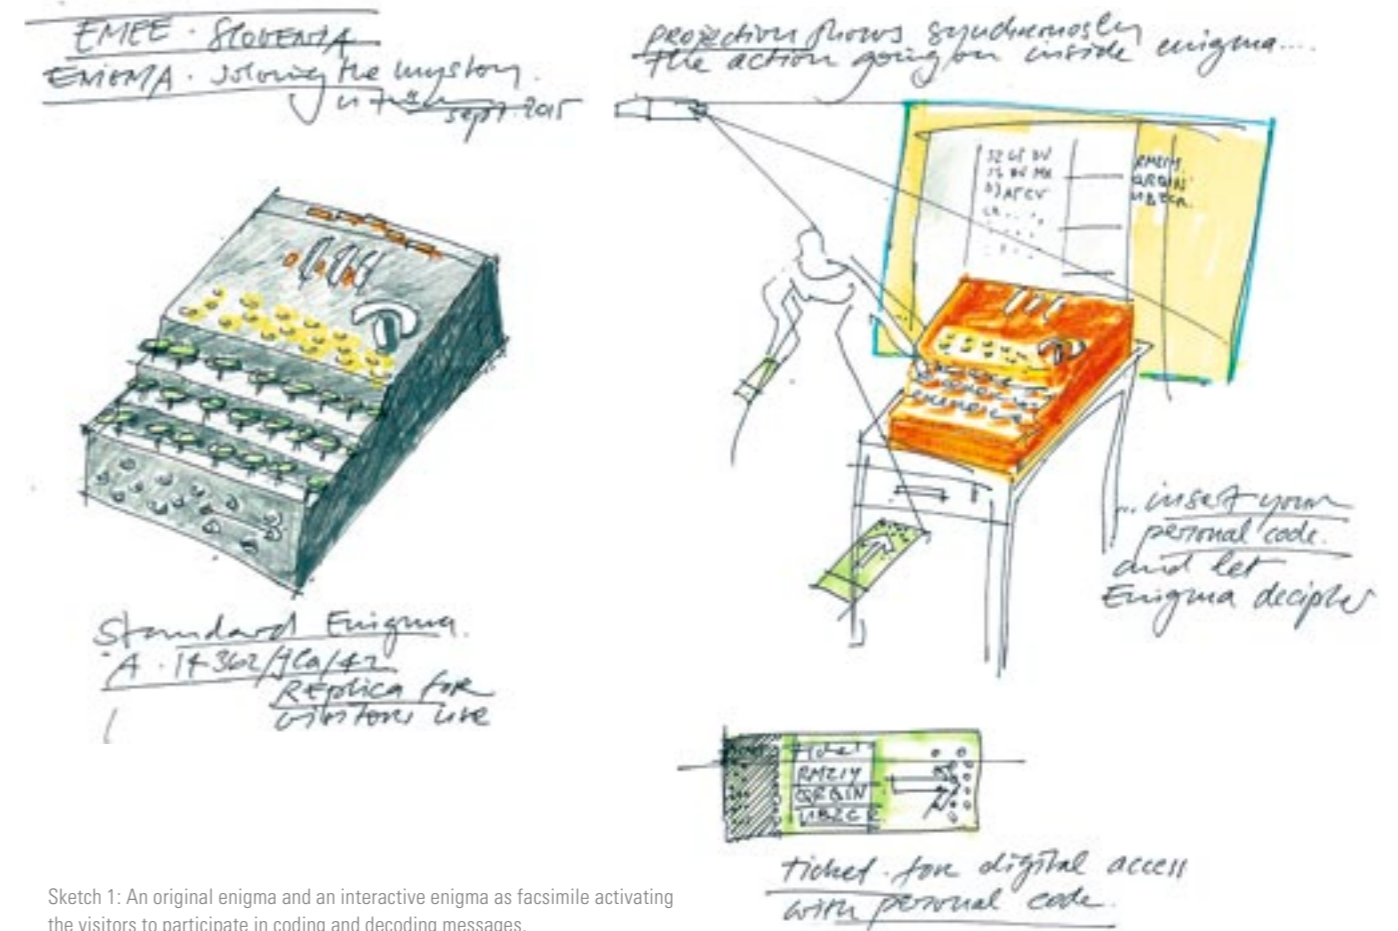 EMEE · SLOVENIA
ENIGMA · solving the mystery
sept. 2015
projection shows synchronosly
the action going on inside enigma....
RMZIY
QRGIN
UBZCR.
... insert your
personal code.
and let
Enigma decipher
Standard Enigma.
A · 17362/jla/42
Replica for
visitors use
ticket
RMZIY
QRGIN
UBZCR
ticket · for digital access
with personal code.
Sketch 1: An original enigma and an interactive enigma as facsimile activating
the visitors to participate in coding and decoding messages.